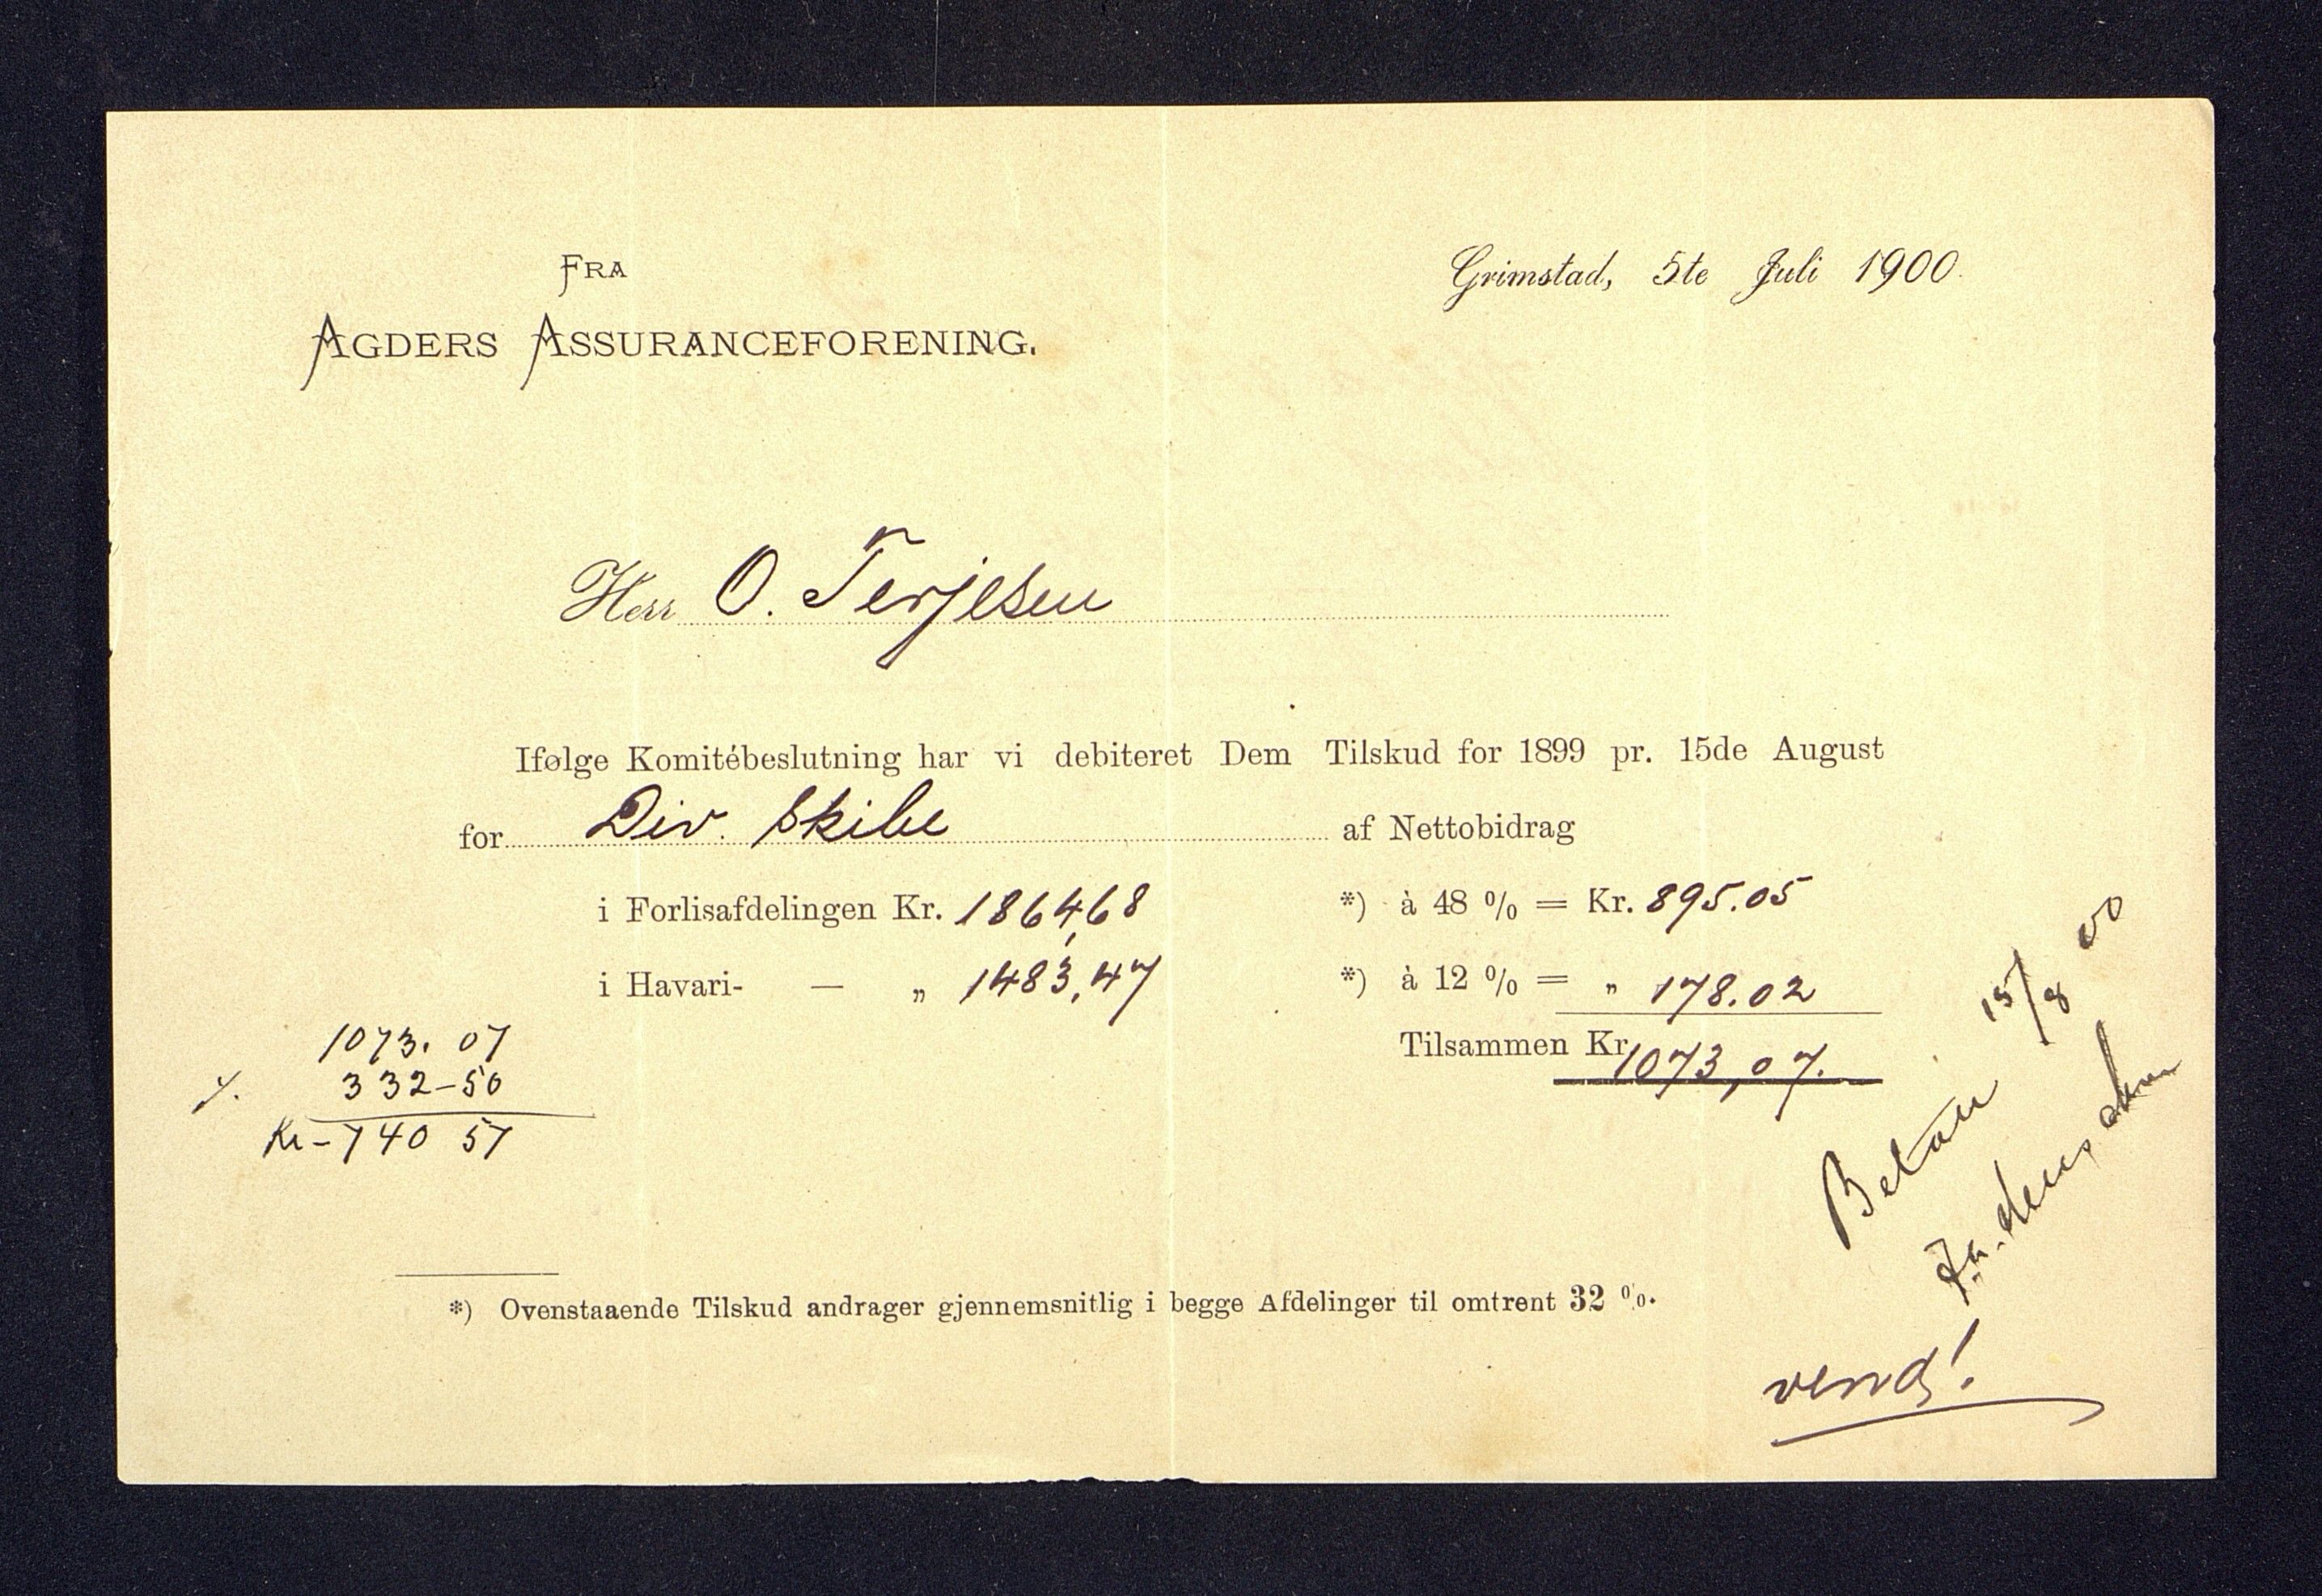 FRA
AGDERS ASSURANCEFORENING.
Grimstad, 5te Juli 1900.
Herr O. Terjesen
Ifølge Komitébeslutning har vi debiteret Dem Tilskud for 1899 pr. 15de August
for Div. Skibe af Nettobidrag
i Forlisafdelingen Kr. 1864,68 *) à 48 % = Kr. 895.05
i Havari- — „ 1483,47 *) à 12 % = „ 178.02
Tilsammen Kr 1073,07.
1073. 07
332-50
Kr - 740 57
Betalt 15/8 00
*) Ovenstaaende Tilskud andrager gjennemsnitlig i begge Afdelinger til omtrent 32 %.
vend!